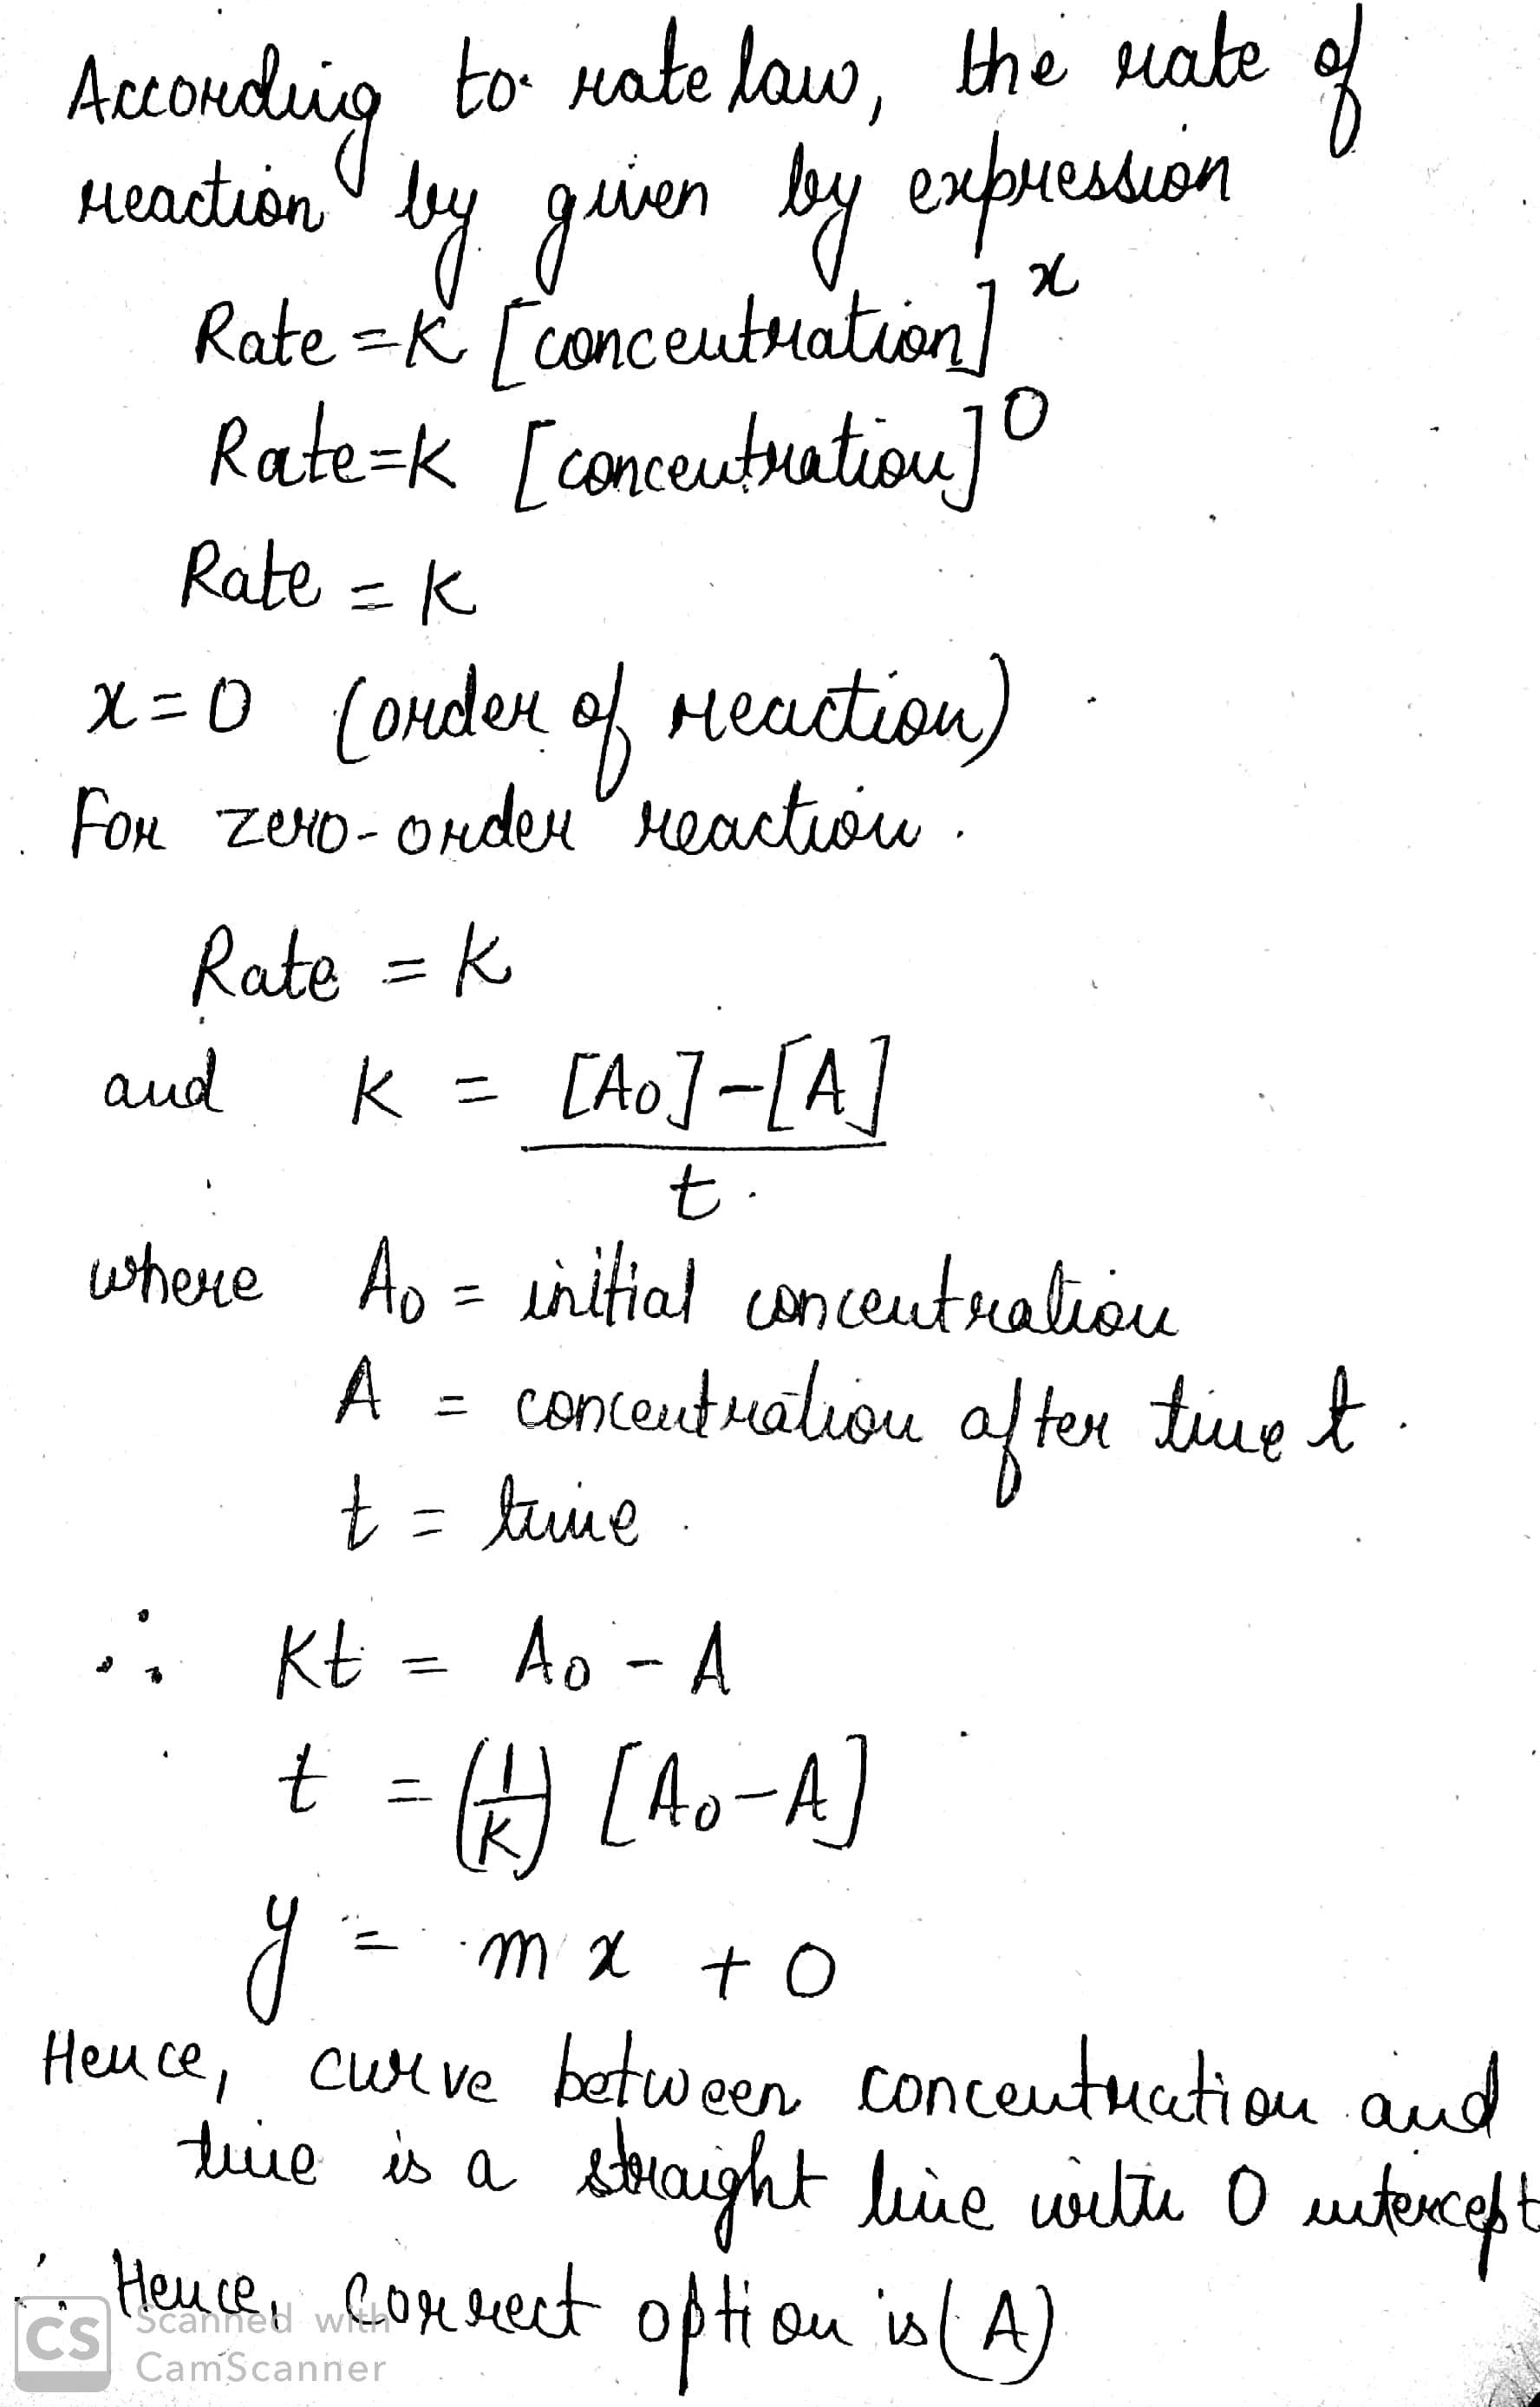 According to rate law, the rate of
reaction by given by expression
Rate = K [concentration]^x
Rate = K [concentration]^0
Rate = K
x = 0 (order of reaction)
For zero-order reaction.
Rate = K
and K = [A0]-[A]
t
where A0 = initial concentration
A = concentration after time t.
t = time.
∴ Kt = A0 - A
t = (1/K) [A0-A]
y = mx + 0
Hence, curve between concentration and
time is a straight line with 0 intercept
∴ Hence, correct option is (A)
CS Scanned with
CamScanner